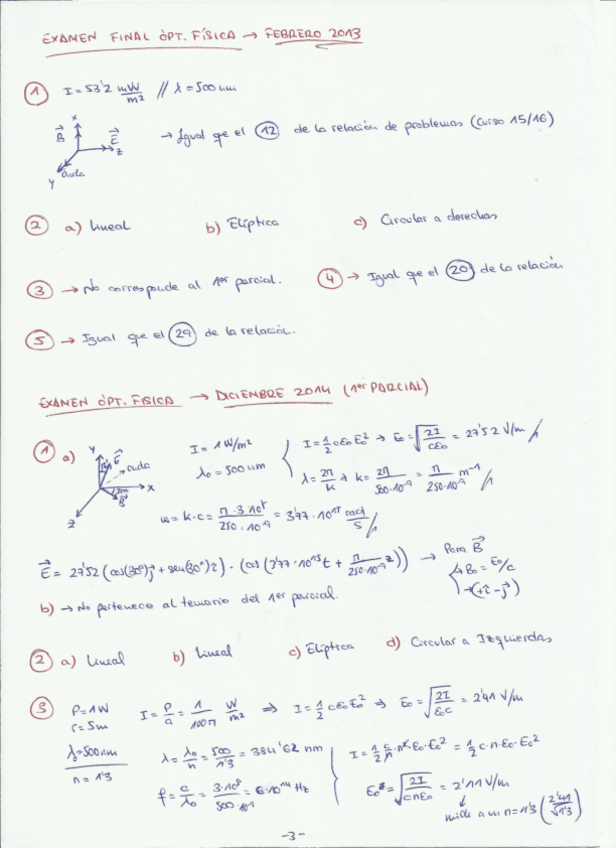 EXAMEN FINAL ÓPT. FÍSICA → FEBRERO 2013
① I = 53'2 mW/m² // λ = 500 nm
x
B⃗ E⃗ z
y onda
→ Igual que el ⑫ de la relación de problemas (Curso 15/16)
② a) Lineal b) Elíptica c) Circular a derechas
③ → No corresponde al 1er parcial. ④ → Igual que el ⑳ de la relación
⑤ → Igual que el ㉙ de la relación.
EXAMEN ÓPT. FISICA → DICIEMBRE 2014 (1er PARCIAL)
① a) y E⃗ onda x B⃗ z
I = 1 W/m²
λ₀ = 500 nm
I = 1/2 cε₀E₀² → E₀ = √(2I/cε₀) = 27'52 V/m
λ = 2π/k → k = 2π/500·10⁻⁹ = π/250·10⁻⁹ m⁻¹
ω = k·c = π·3·10⁸/250·10⁻⁹ = 3'77·10¹⁵ rad/s
E⃗ = 27'52 (cos(30°)j⃗ + sen(30°)î)·(cos(3'77·10¹⁵t + π/250·10⁻⁹ z)) → Para B⃗
B₀ = E₀/c
→(+î - j⃗)
b) → No pertenece al temario del 1er parcial.
② a) Lineal b) Lineal c) Elíptica d) Circular a Izquierdas
③ P = 1W
r = 5m
λ₀ = 500nm
n = 1'3
I = P/a = 1/100π W/m² ⇒ I = 1/2 cε₀E₀² ⇒ E₀ = √(2I/ε₀c) = 2'41 V/m
λ = λ₀/n = 500/1'3 = 384'62 nm
f = c/λ₀ = 3·10⁸/500·10⁻⁹ = 6·10¹⁴ Hz
I = 1/2 c/n·n²·ε₀·E₀² = 1/2 c·n·ε₀·E₀²
E₀ = √(2I/cnε₀) = 2'11 V/m
n = 1'3 (2'41/√1'3)
-3-